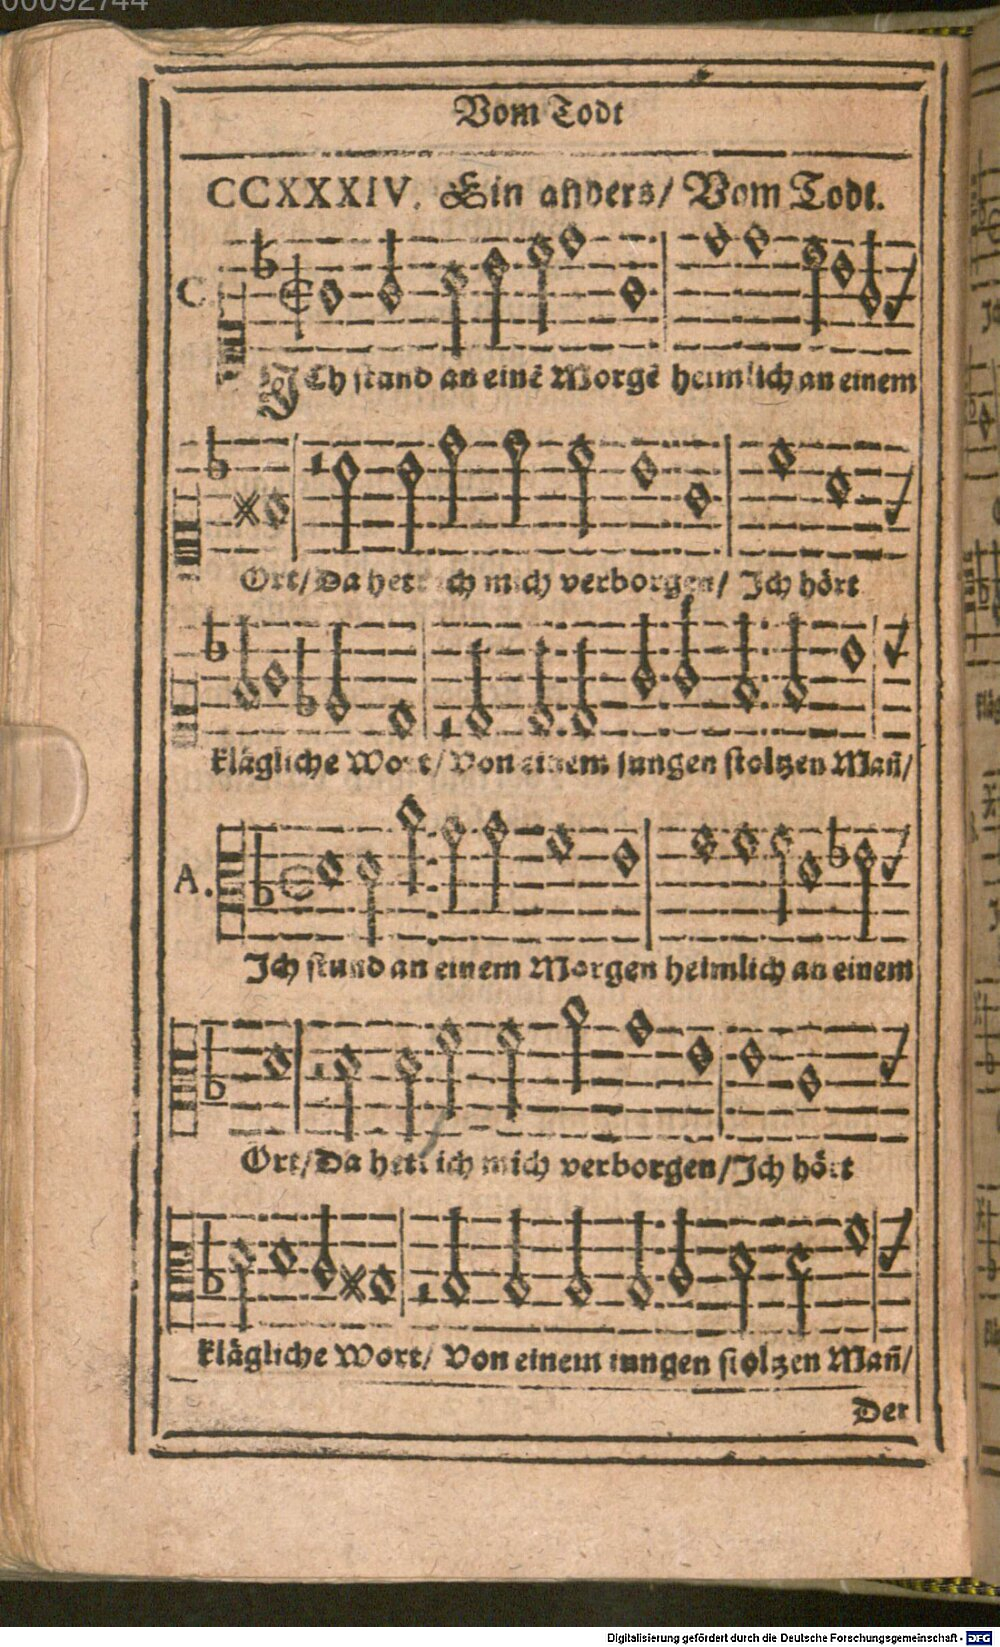 00092744
Vom Todt
CCXXXIV. Ein anders/ Vom Todt.
C
ICh stand an einē Morgē heimlich an einem
Ort/ Da hett ich mich verborgen/ Ich hört
klägliche Wort/ Von einem jungen stoltzen Mañ/
A.
Ich stund an einem Morgen heimlich an einem
Ort/ Da hett ich mich verborgen/ Ich hört
klägliche Wort/ Von einem jungen stoltzen Mañ/
Der
Digitalisierung gefördert durch die Deutsche Forschungsgemeinschaft - DFG